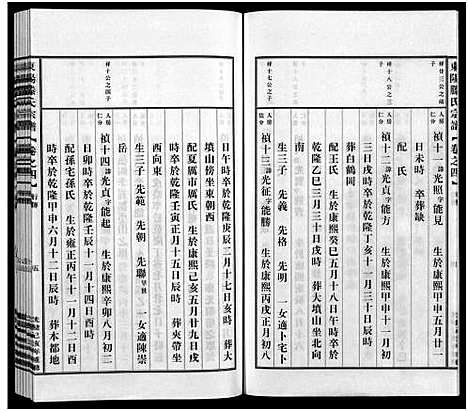 東陽滕氏宗譜
卷之四
行傳
祥廿三公之四子
人房 仁分
禎十一 諱光照 字能見 生於康熙甲申五月廿一
日未時 卒葬缺
配 氏
祥十八公之三子
人房
禎十二 諱光貞 字能方 生於康熙甲申十一月初
三日戌時卒於乾隆丁亥十一月十三日亥時
葬白鶴岡
配王氏 生於康熙癸巳五月十八日午時卒於
乾隆乙巳三月三日戌時 葬大墳山坐北向
生三子 先義 先格 先明 一女適卜宅卜
祥十七公之子
人房 仁分
禎十三 諱光征 字能勝 生於康熙 八月初八
日午時卒於乾隆庚辰二月十七日亥時 葬大
墳山傍坐東朝西
配夏厲市厲氏 生於康熙己亥五月廿九日戌
時卒於乾隆壬寅正月十五日辰時 葬夾帶坐
西向東
生三子 先範 先朝 先聯 早世 一女適陳崇
岳
祥十公之四子
人房 仁分
禎十四 諱光庭 字能起 生於康熙辛卯八月初二
日卯時卒於乾隆壬辰十一月十四日酉時
配孫宅孫氏 生於雍正丙午十一月十二日
時卒於乾隆甲申六月十二日辰時 葬本都地
東陽滕氏宗譜
卷之四
行傳
五
光緒己亥年重修